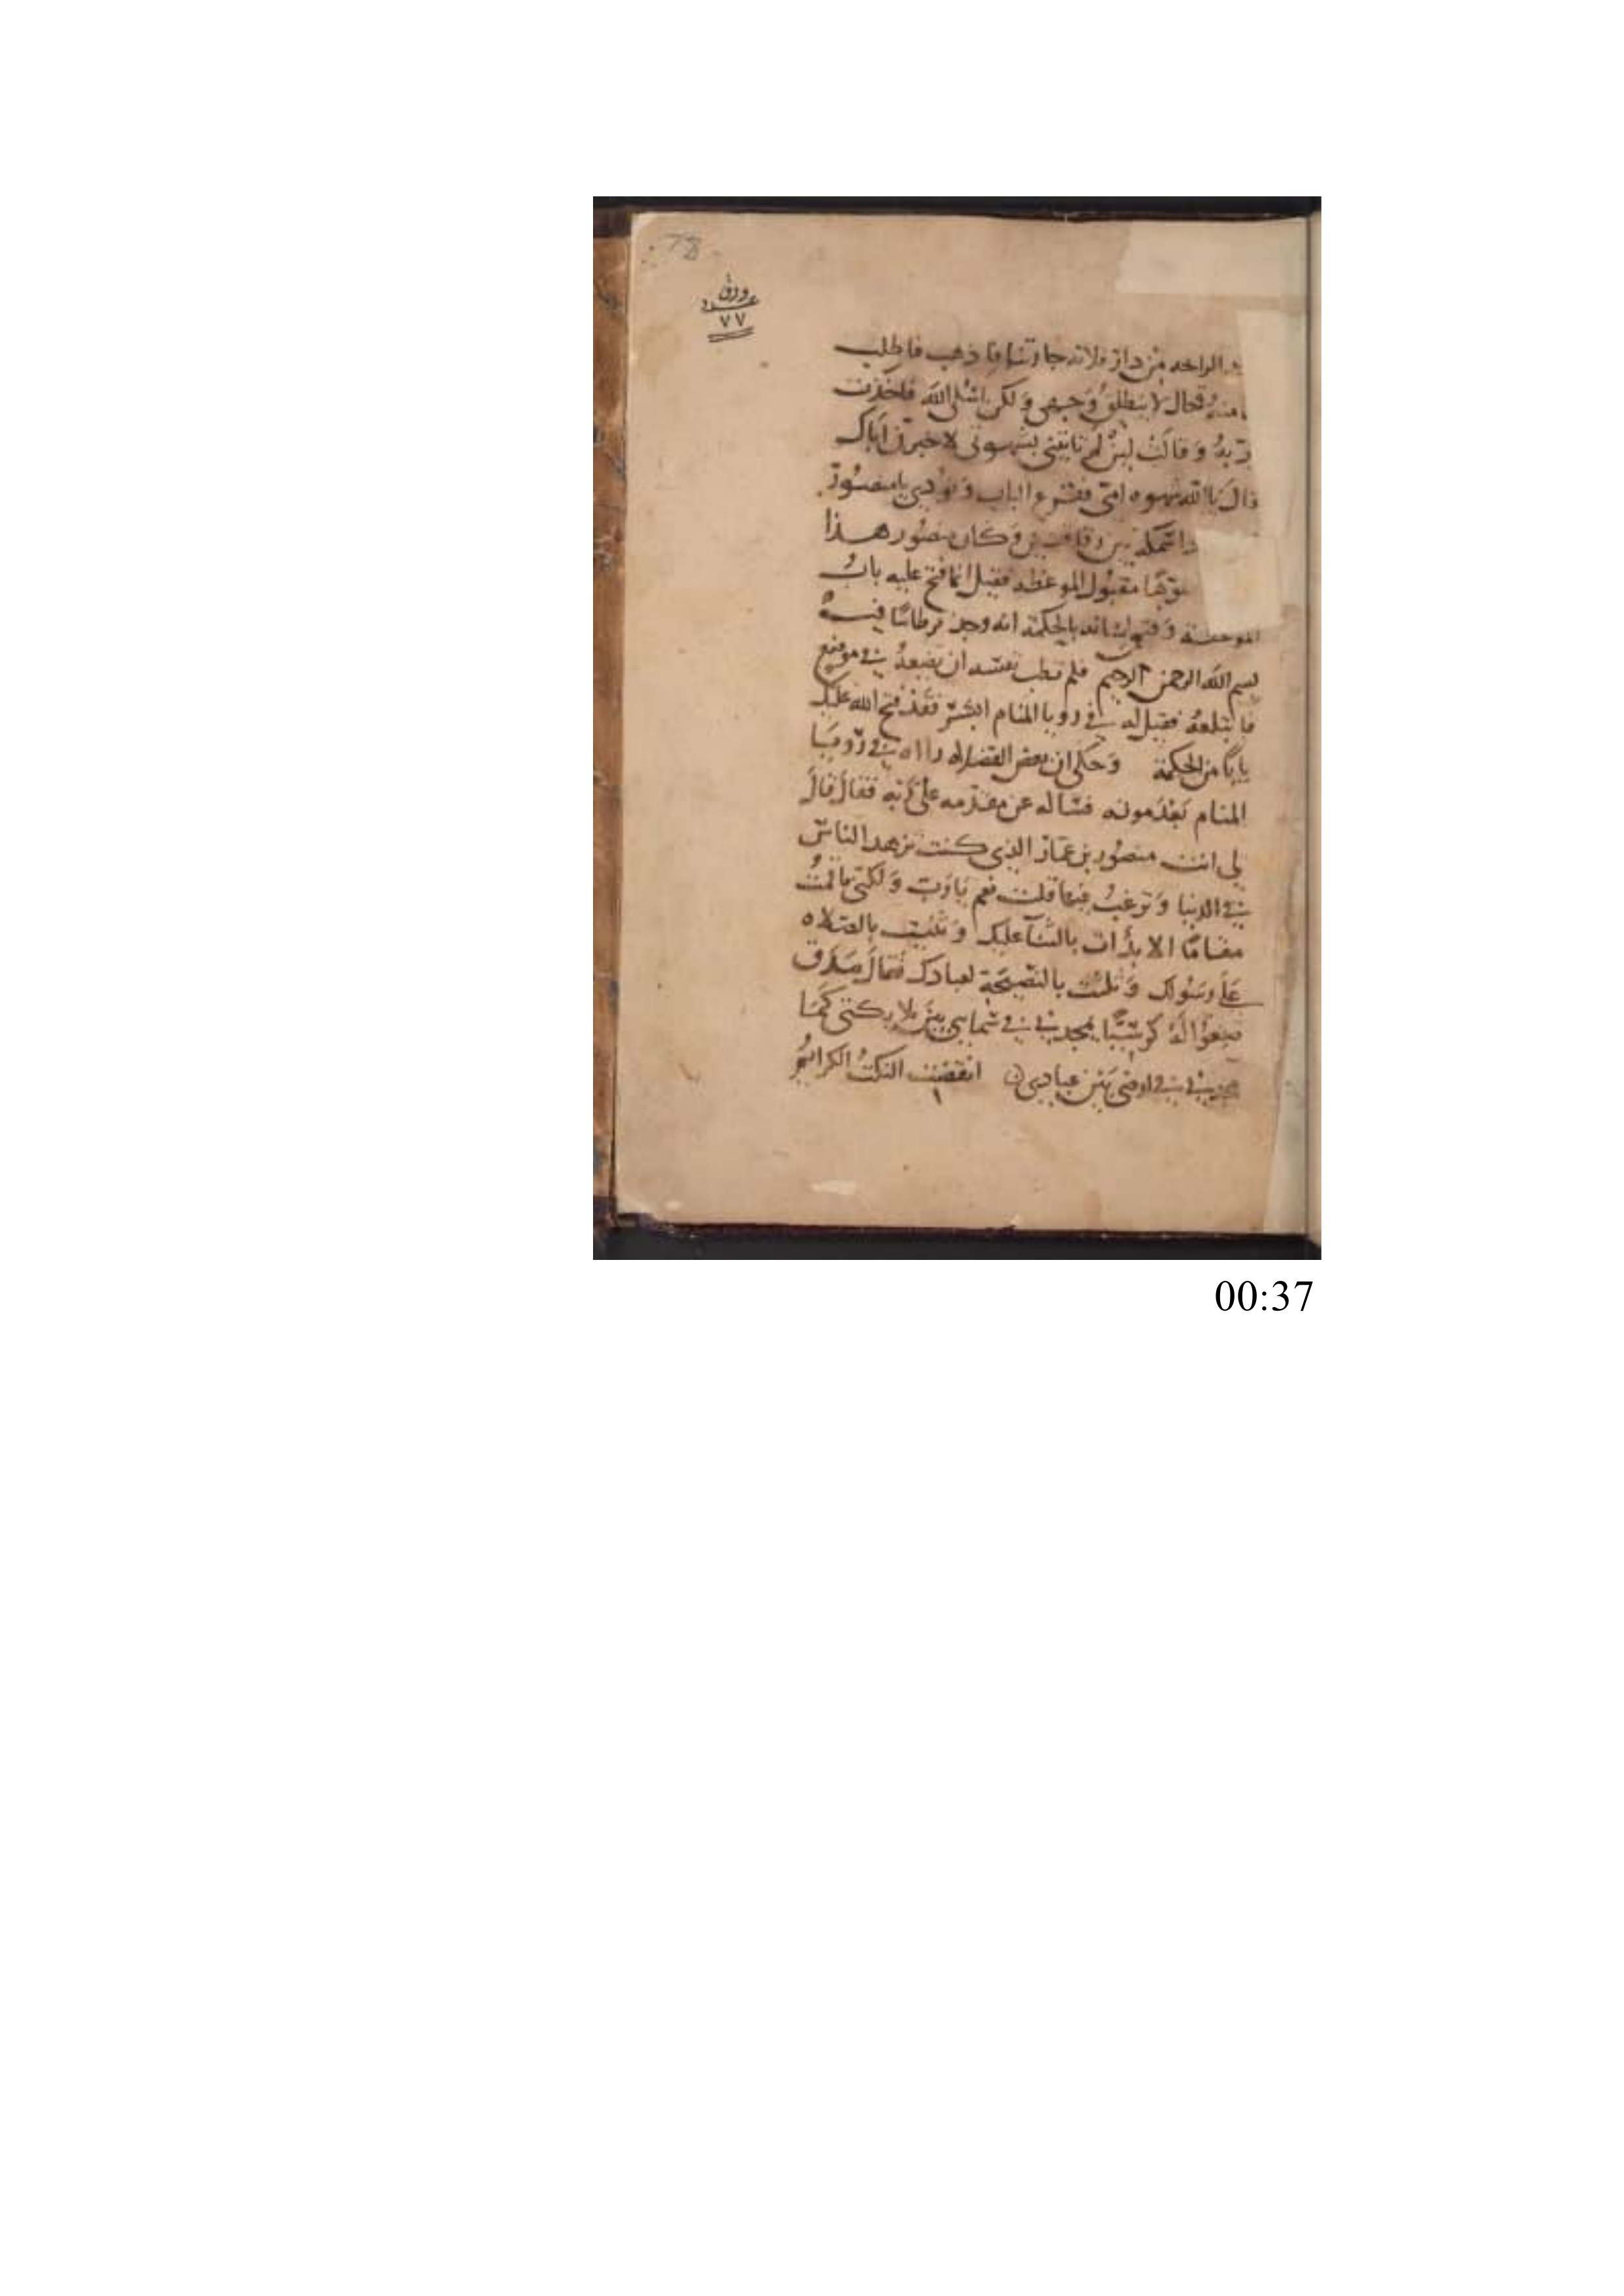 ورق
عدد
٧٧
الراحه من دار فلانه جارتنا فاذهب فاطلب
منه فقال لا ينطلق وجهي ولكن اسئل الله فاخذت
وقالت لين لم تاتيني بشهوتي لاخبرن اباك
قال يا الله شهوه امي فقرع الباب ونودي يا منصور
سمكة بين وكان منصور هذا
مقبول الموعظه فقيل انما فتح عليه باب
الموعظة وفتح لسانه بالحكمة انه وجد قرطاسا فيه
بسم الله الرحمن الرحيم فلم تطب نفسه ان يضعهُ في موضع
فابتلعهُ فقيل له في رويا المنام ابشر فقد فتح الله عليك
بابًا من الحكمة وحكى ان بعض الفضلاء رااه في رويا
المنام بعد موته فساله عن مقدمه على ربه فقال قال
لي انت منصور بن عمار الذي كنت تزهد الناس
في الدنيا وترغب فيها قلت نعم يا رب ولكني ما قمتُ
مقامًا الا بدأت بالثنآ عليك وثنيت بالصلاه
على رسولك وثلثت بالنصيحة لعبادك فقال صدق
ضعوا له كرسيًّا يمجدني في سمايي بين ملايكتي كما
مجدني في ارضي بين عبادي انقضت النكتُ